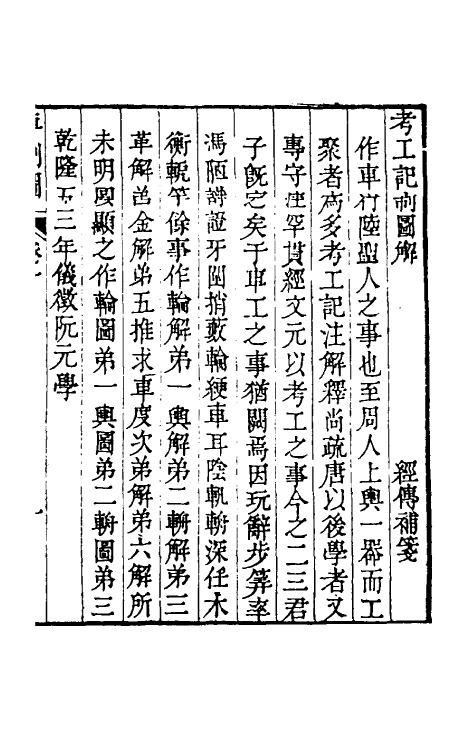 考工記車制圖解　經傳補箋
作車行陸聖人之事也至周人上輿一器而工
聚者為多考工記注解釋尚疏唐以後學者又
專守注罕貫經文元以考工之事今之二三君
子既宣之矣于車工之事猶闕焉因玩辭步算率
馮陋辨證牙圍捎藪輪綆車耳陰軓輈深任木
衡軛等餘事作輪解弟一輿解弟二輈解弟三
革解弟四金解弟五推求車度次弟解弟六解所
未明圖顯之作輪圖弟一輿圖弟二輈圖弟三
乾隆五十三年儀徵阮元學
車制圖　卷一　一